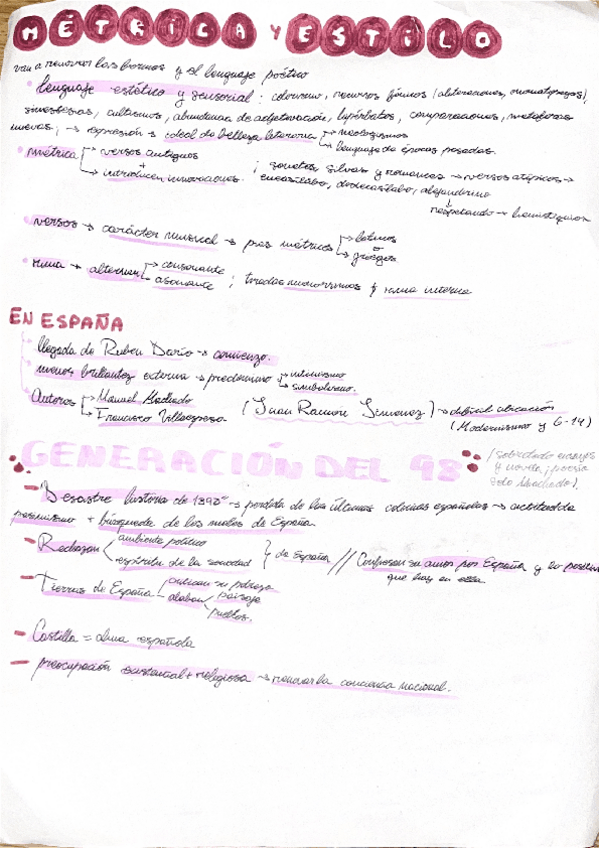 MÉTRICA Y ESTILO
van a renovar las formas y el lenguaje poético
lenguaje estético y sensorial: colorismo, recursos fónicos (aliteraciones, onomatopeyas),
sinestesias, cultismos, abundancia de adjetivación, hipérbatos, comparaciones, metáforas
nuevas; → expresión → ideal de belleza literaria → neologismos
→ lenguaje de épocas pasadas.
métrica → versos antiguos
+
→ introducen innovaciones. ; sonetos, silvas y romances → versos atípicos →
eneasílabo, dodecasílabo, alejandrino
↓
→ hemistiquios
versos → carácter musical → pies métricos → latinos
→ griegos
rima → alternan → consonante
→ asonante ; tiradas monorrimas y rima interna
EN ESPAÑA
llegada de Rubén Darío → comienzo.
menos brillantez externa → predominio → intimismo
→ simbolismo.
Autores → Manuel Machado
→ Francisco Villaespesa (Juan Ramón Jiménez) → difícil ubicación
(Modernismo y G-14)
GENERACIÓN DEL 98 (sobretodo ensayos
y novela; poesía
solo Machado).
- Desastre historia de 1898 → perdida de las últimas colonias españolas → actitud de
pesimismo + búsqueda de los males de España.
- Rechazan ambiente político
espíritu de la sociedad } de España // Confiesan su amor por España y lo positivo
que hay en ella.
- Tierras de España critican su pobreza
alaban paisaje
pueblos.
- Castilla = alma española
- preocupación existencial + religiosa → renovar la conciencia nacional.